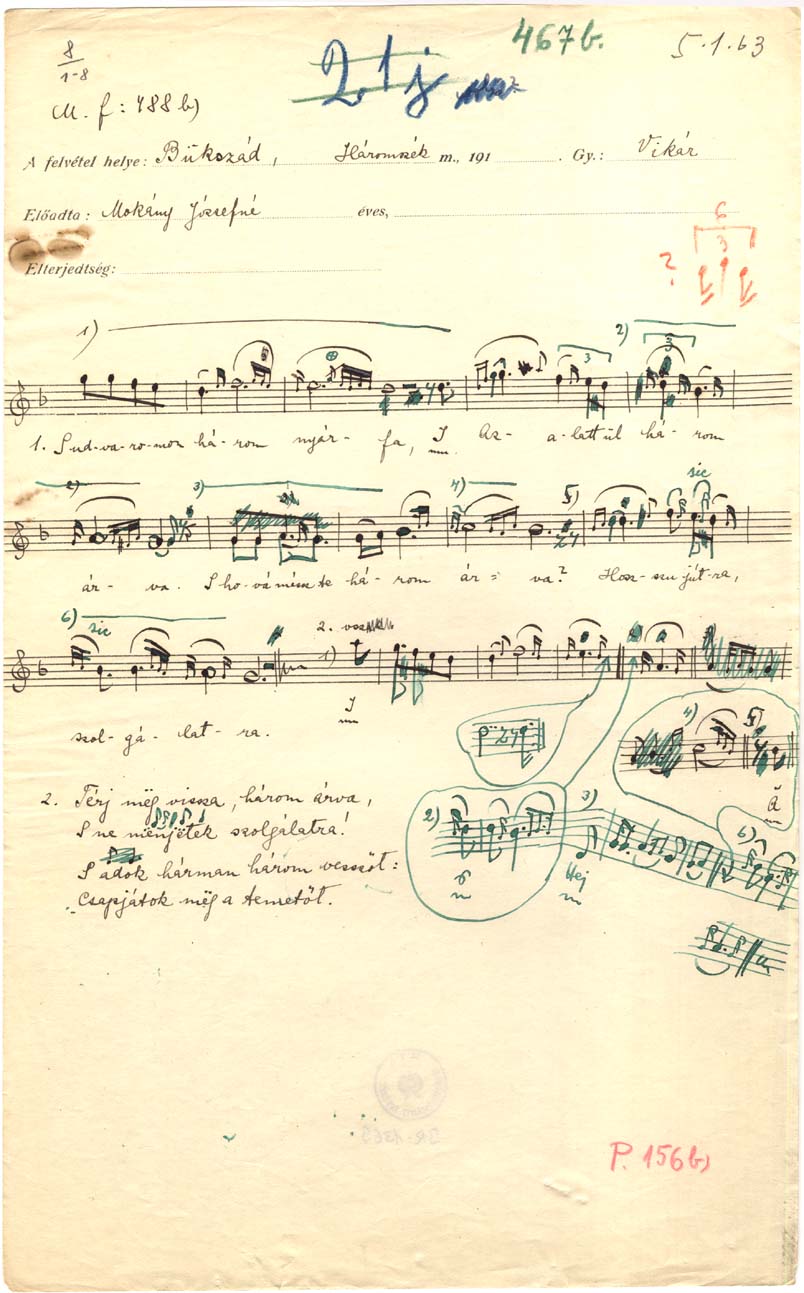 467b.
5.1.63
8
1-8
21j
M. f: 488 b)
A felvétel helye: Bükszád, Háromszék m., 191 . Gy.: Vikár
Előadta: Mokány Józsefné éves,
Elterjedtség:
6
3
?
1)
2)
3
3
1. S ud-va-ro-mon há-rom nyár-fa, S Az- a-lattül há-rom
2) 3) 4) 5) sic
ár-va. S ho-vá mész te há-rom ár-va? Hosszu-jut-ra,
6) sic
2. vsz
1)
S
szol-gá-lat-ra.
4) 5)
2. Térj még vissza, három árva,
S ne menjetek szolgálatra!
S adok hárman három vesszőt:
Csapjátok meg a temetőt.
2) 3) 6)
Hej
P. 156b)